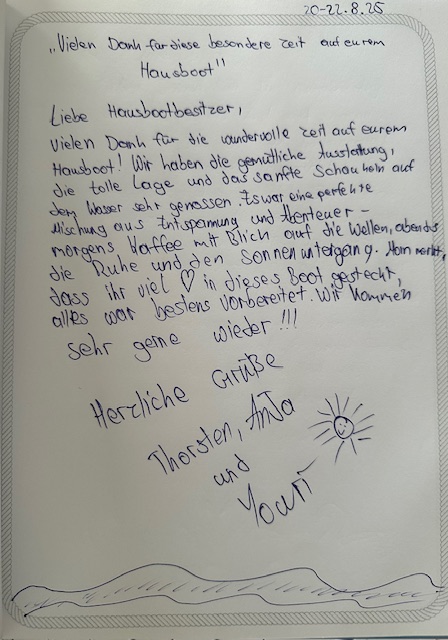 20-22.8.25
"Vielen Dank für diese besondere Zeit auf eurem
Hausboot"
Liebe Hausbootbesitzer,
Vielen Dank für die wundervolle Zeit auf eurem
Hausboot! Wir haben die gemütliche Ausstattung,
die tolle Lage und das sanfte Schaukeln auf
dem Wasser sehr genossen. Es war eine perfekte
Mischung aus Entspannung und Abenteuer –
morgens Kaffee mit Blick auf die Wellen, abends
die Ruhe und den Sonnenuntergang. Man merkt,
dass ihr viel ♡ in dieses Boot gesteckt,
alles war bestens vorbereitet. Wir kommen
sehr gerne wieder!!!
Herzliche Grüße
Thorsten, Anja
und